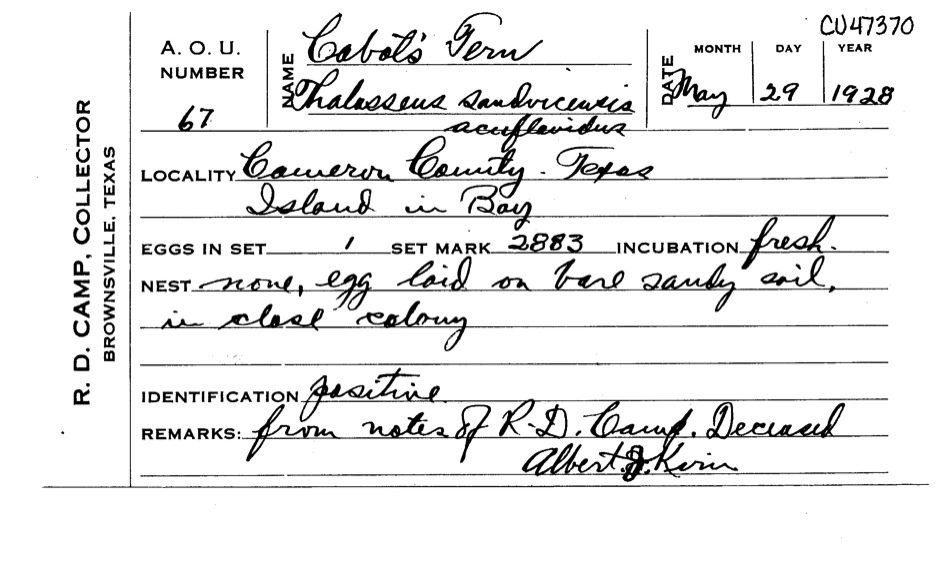 CU47370
A. O. U.
NUMBER
67
NAME
Cabot's Tern
Thalasseus sandvicensis
acuflavidus
DATE
MONTH DAY YEAR
May 29 1928
R. D. CAMP, COLLECTOR
BROWNSVILLE, TEXAS
LOCALITY Cameron County. Texas
Island in Bay
EGGS IN SET 1 SET MARK 2883 INCUBATION fresh.
NEST none, egg laid on bare sandy soil,
in close colony
IDENTIFICATION positive
REMARKS: from notes of R. D. Camp. Deceased
Albert J. Kirn